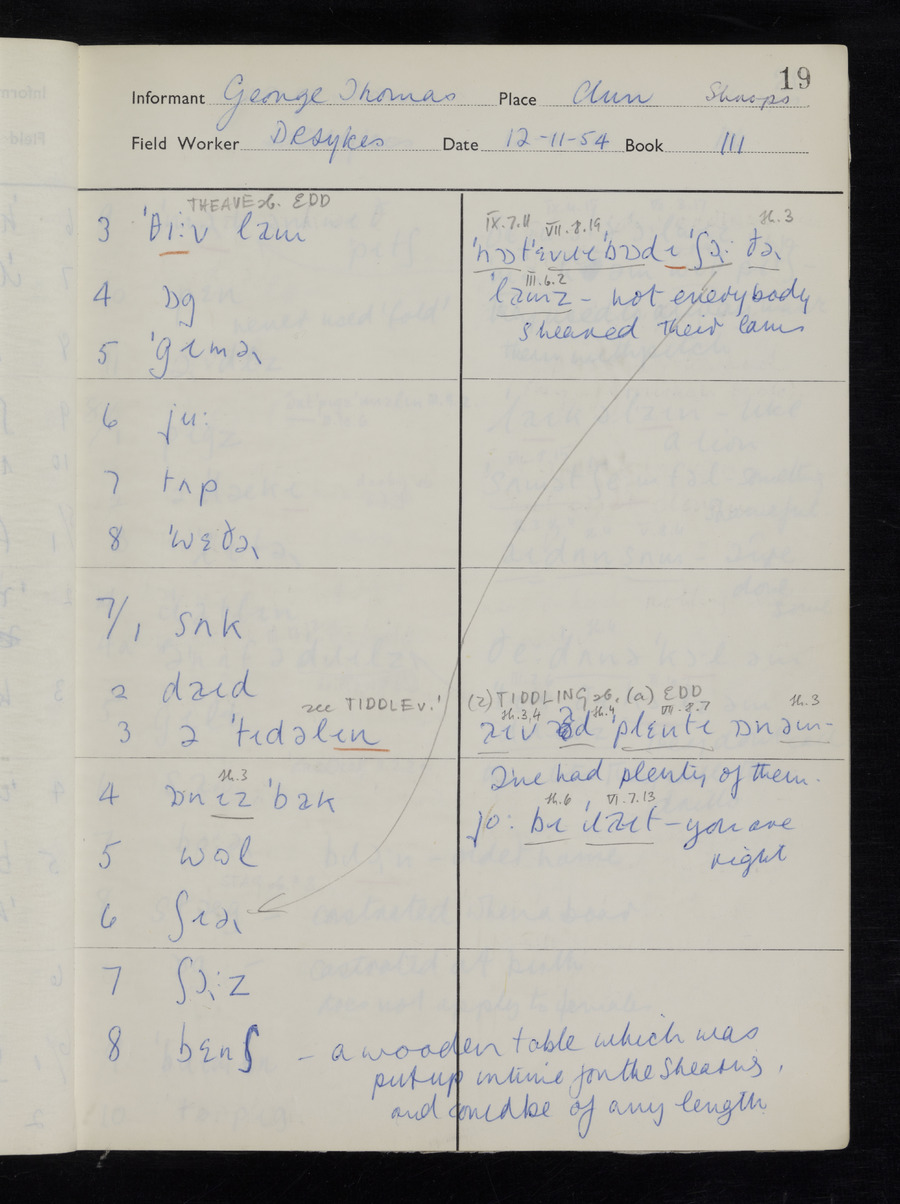 19
Informant George Thomas Place Clun Shrops
Field Worker DRSykes Date 12-11-54 Book III
THEAVE sb. EDD
3 'θi:v lam
4 ɒg
5 'gɪməɹ
6 ju:
7 tʌp
8 'wɛðəɹ
7/1 sʌk
2 dʒɛd
see TIDDLE v.¹
3 ə 'tɪdəlɪn
th.3
4 ɒnɪz 'bak
5 wʊl
6 ʃɪəɹ
7 ʃəɹ:z
8 bɛnʃ – a wooden table which was
put up in time for the shearing,
and could be of any length
IX.7.11 VII.8.19 th.3
'nɒt'ɛvɹɪ'bɒdɪ 'ʃəɹ: ðəɹ
III.6.2
'lamz – not everybody
sheared their lams
(2) TIDDLING sb. (a) EDD
th.3,4 th.4 VII.8.7 th.3
əɪv əd 'plɛntɪ ɒnəm –
I've had plenty of them.
th.6 VI.7.13
jo: bɪ 'ɹəɪt – you are
right